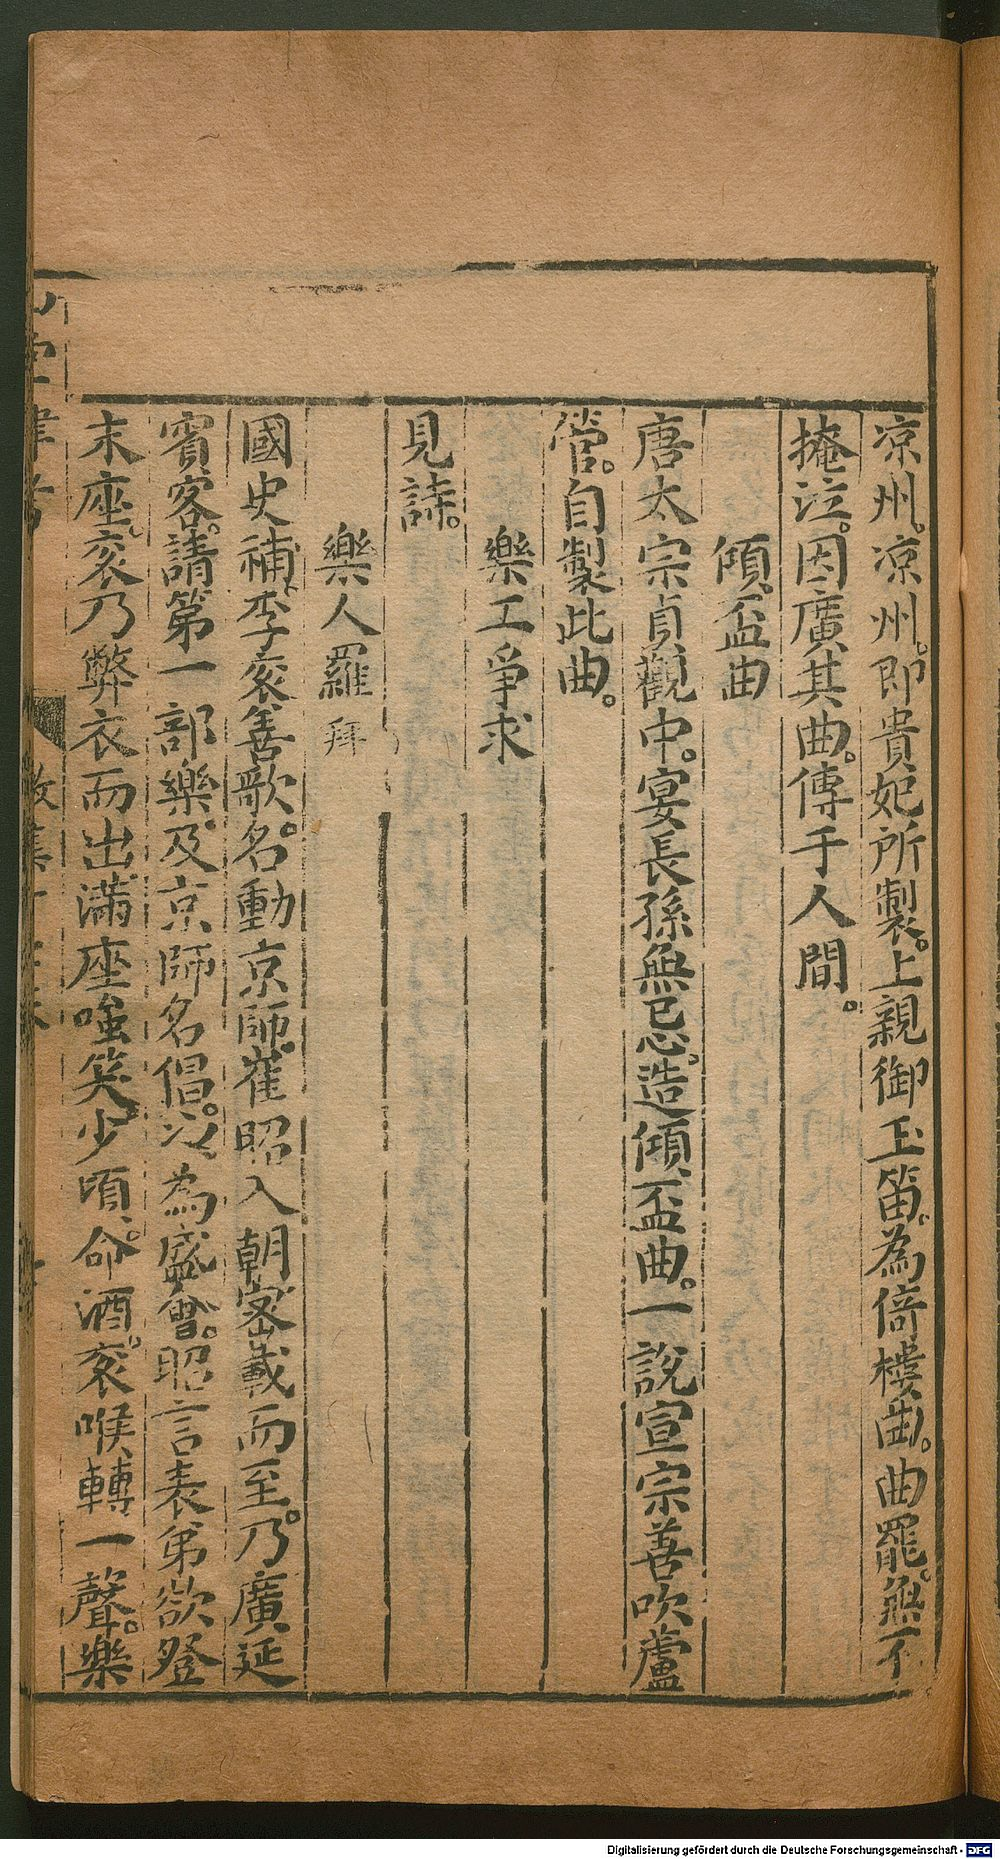 凉州。凉州。即貴妃所製。上親御玉笛。為倚樓曲。曲罷。無不
掩泣。因廣其曲。傳于人間。
傾盃曲
唐太宗貞觀中。宴長孫無忌。造傾盃曲。一說宣宗善吹蘆
管。自製此曲。
樂工爭求
見詩。
樂人羅拜
國史補。李袞善歌。名動京師。崔昭入朝。密載而至。乃廣延
賓客。請第一部樂。及京師名倡。以為盛會。昭言表弟欲登
末座。袞乃弊衣而出。滿座嗤笑。少頃。命酒。袞喉轉一聲。樂
Digitalisierung gefördert durch die Deutsche Forschungsgemeinschaft - DFG